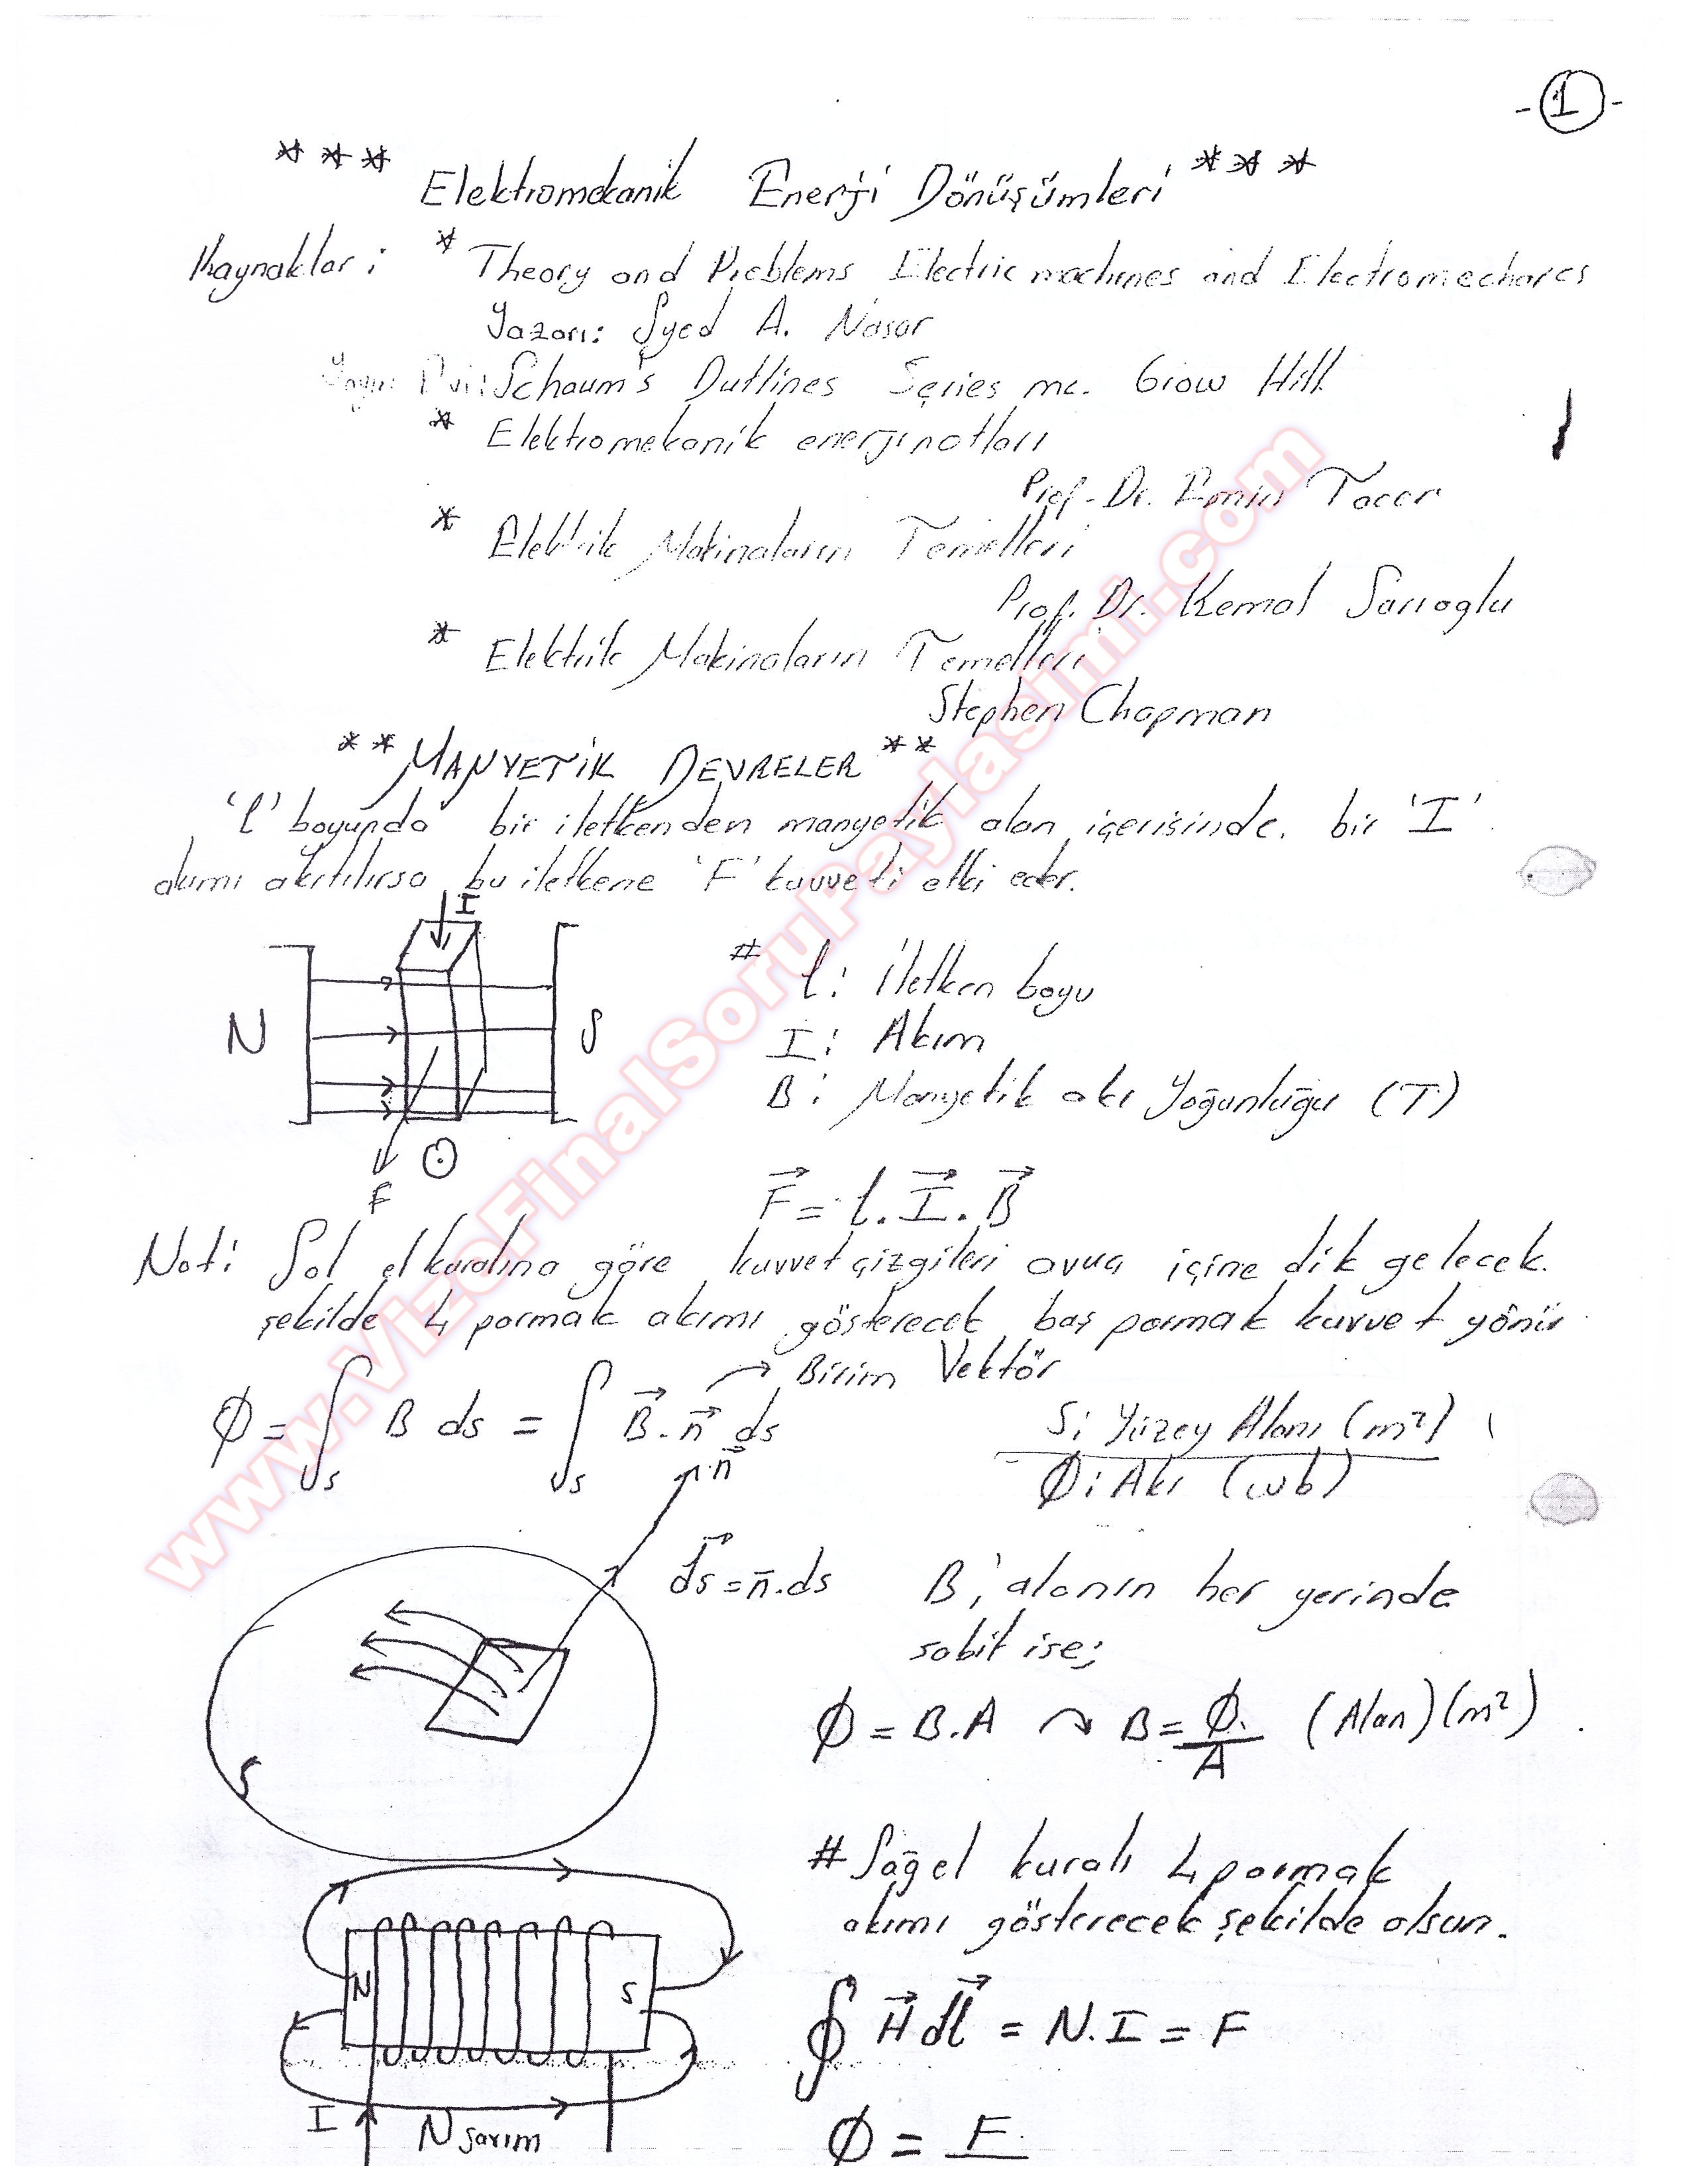 -1-
*** Elektromekanik Enerji Dönüşümleri ***
Kaynaklar: * Theory and Problems Electric machines and Electromechanics
Yazarı: Syed A. Nasar
Yayın Evi: Schaum's Outlines Series mc. Graw Hill
* Elektromekanik enerji notları
Prof. Dr. Emin Tacer
* Elektrik Makinaların Temelleri
Prof. Dr. Kemal Sarıoglu
* Elektrik Makinaların Temelleri
Stephen Chapman
** MANYETİK DEVRELER **
'l' boyunda bir iletkenden manyetik alan içerisinde. bir 'I'
akımı akıtılırsa bu iletkene 'F' kuvveti etki eder.
I
N S
F
# l: İletken boyu
I: Akım
B: Manyetik akı Yoğunluğu (T)
F⃗ = l.I⃗.B⃗
Not: Sol el kuralına göre kuvvet çizgileri avuç içine dik gelecek.
şekilde 4 parmak akımı gösterecek baş parmak kuvvet yönü
→ Birim Vektör
∅ = ∫s B ds = ∫s B⃗.n⃗ ds
S: Yüzey Alanı (m²)
∅: Akı (wb)
n⃗
ds⃗ = n⃗.ds
B; alanın her yerinde
sabit ise;
S
∅ = B.A ↷ B = ∅/A (Alan) (m²)
# Sağel kuralı 4 parmak
akımı gösterecek şekilde olsun.
N S
∮ H⃗ dl⃗ = N.I = F
I N sarım
∅ = F
www.VizeFinalSoruPaylasimi.com